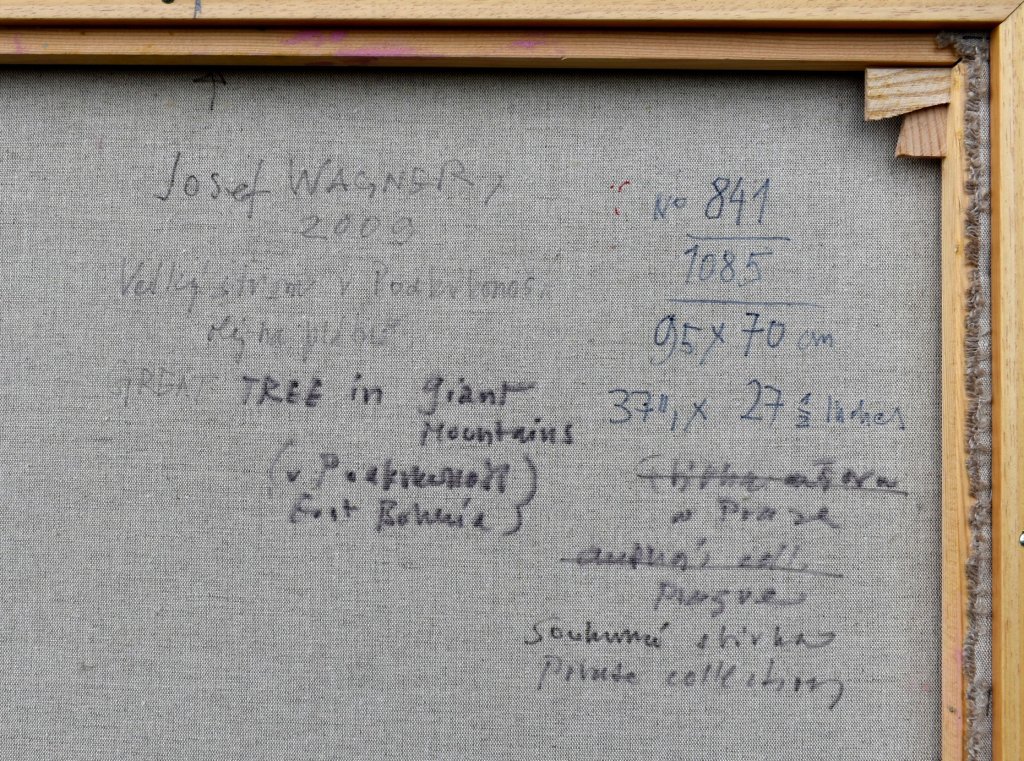 Josef WAGNER,
2009
Velký strom v Podkrkonoší
olej na plátně
GREAT TREE in Giant
Mountains
(v Podkrkonoší
East Bohemia)
No 841
1085
95 x 70 cm
37", x 27 1/2 Inches
v Praze
coll.
Prague
Soukromá sbírka
Private collection